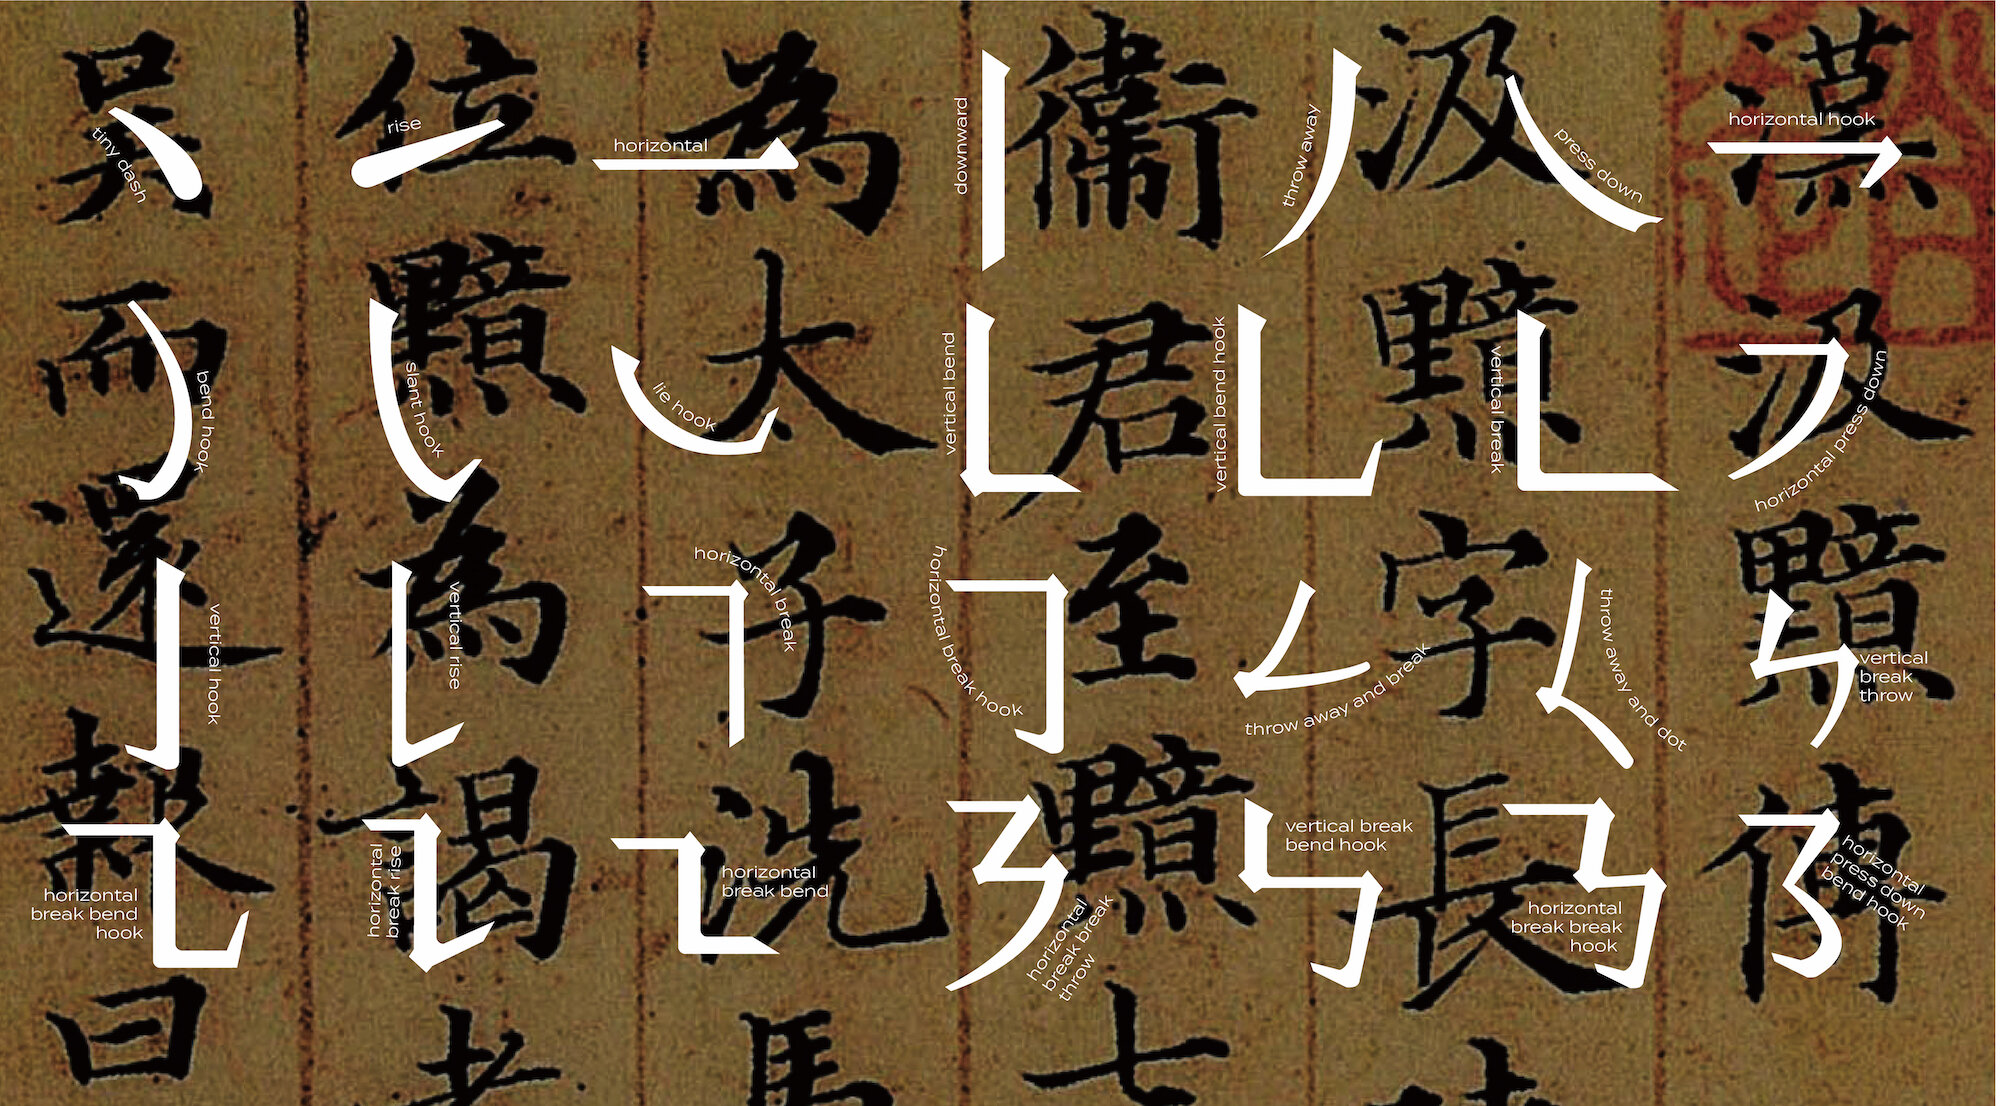 漢汲黯傳
汲黯字長
衞君至黯七
為太子洗馬
位黯為謁者
吳而還報曰
tiny dash
rise
horizontal
downward
throw away
press down
horizontal hook
bend hook
slant hook
lie hook
vertical bend
vertical bend hook
vertical break
horizontal press down
vertical hook
vertical rise
horizontal break
horizontal break hook
throw away and break
throw away and dot
vertical
break
throw
horizontal
break bend
hook
horizontal
break rise
horizontal
break bend
horizontal
break break
throw
vertical break
bend hook
horizontal
break break
hook
horizontal
press down
bend hook